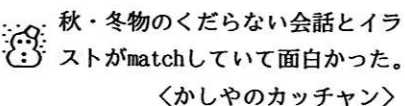 秋・冬物のくだらない会話とイラ
ストがmatchしていて面白かった。
〈かしやのカッチャン〉